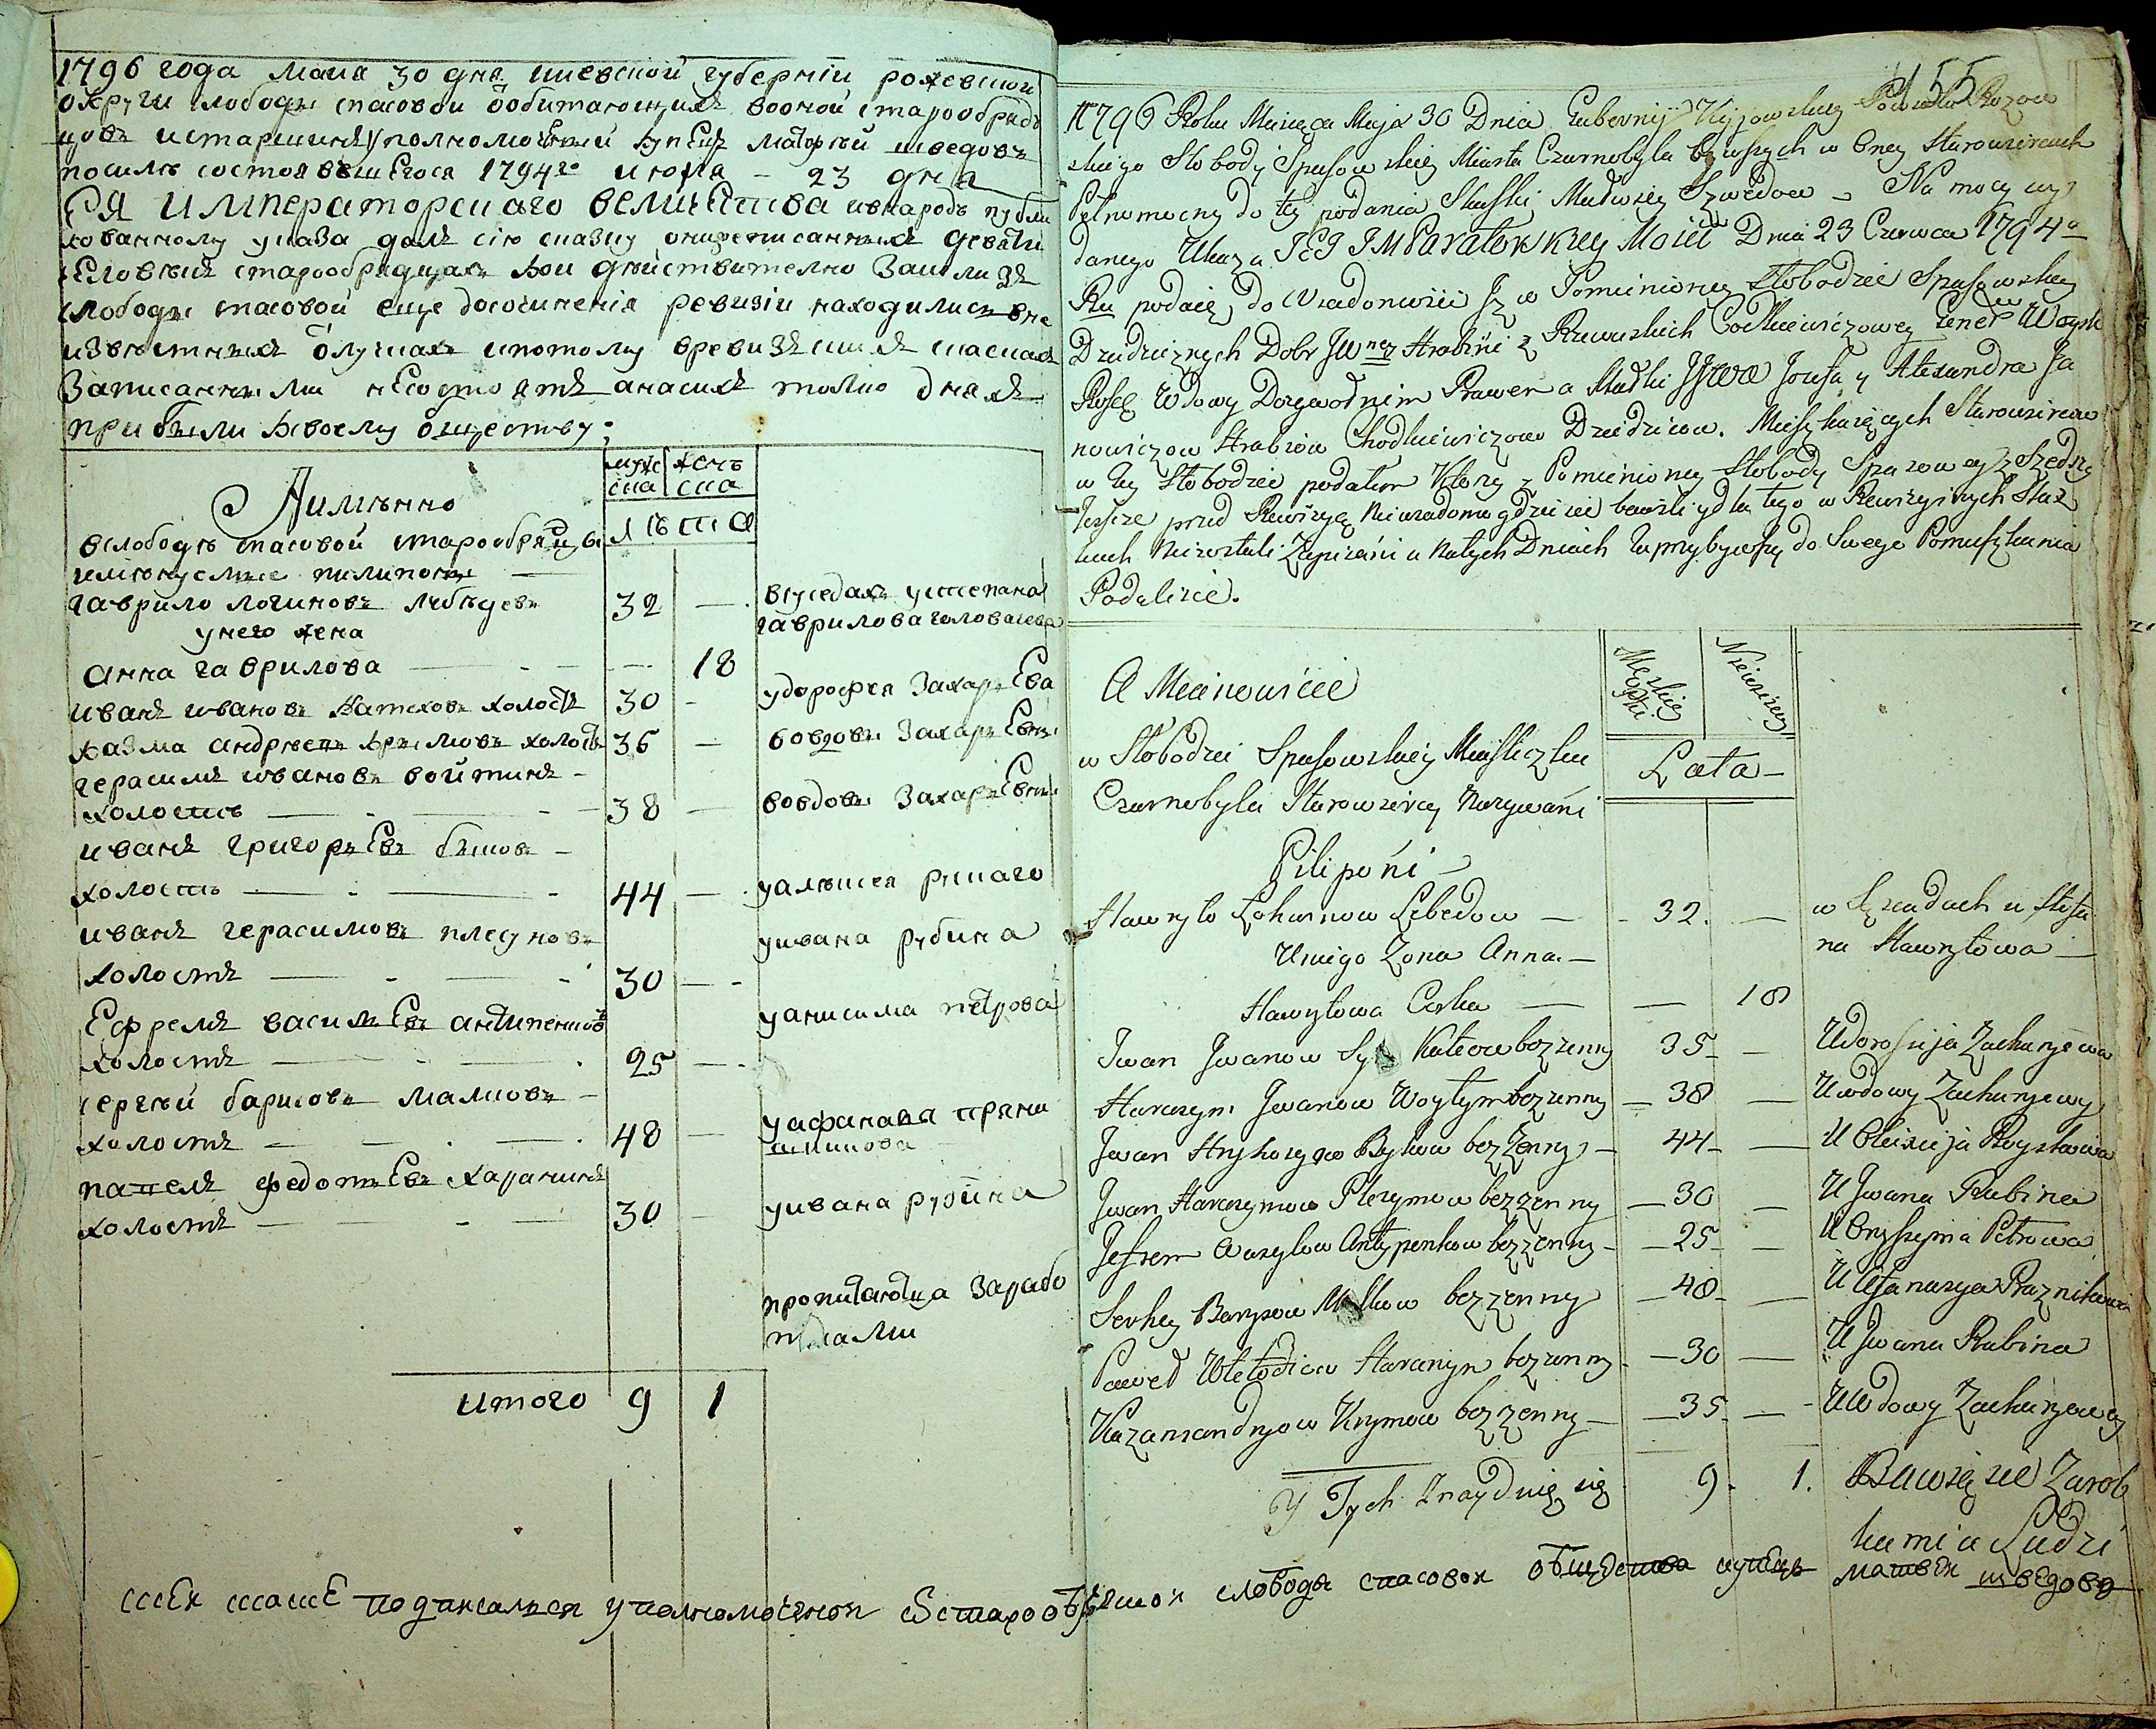 1796 года маия 30 дня киевской губернiи рожевской
округи слободы спасовой обитающихъ вооной старообряд
цовъ истаршинъ уполномоченный купецъ матфей шведовъ
посилъ состоявшегося 1794го июня - 23 дня
ЕЯ императорскаго величества внародъ публи
кованному указа далъ сiю сказку
старообрядцахъ кои действително зашли зъ
слободы спасовой еще досочиненiя ревизiи находились вне
известныхъ случаяхъ ипотому вревизскихъ сказкахъ
записанными несостоятъ анасихъ толко дняхъ
прибыли ксвоему обществу:
Аимянно
мужс
ска
женъ
ска
лѣта
вслободѣ спасовой старообрядцы
именуемые пилипоны
гаврило логиновъ лебедевъ 32 —
вгуседахъ устепана
гаврилова головачева
унего жена
анна гаврилова — 18
иванъ ивановъ катеховъ холостъ 30 -
удорофея Захарьева
казма андреевъ крымовъ холостъ 35 —
вовдовы Захарьевны
герасимъ ивановъ войтинъ -
холостъ — 38 —
вовдовы Захарьевны
иванъ григорьевъ быковъ -
холостъ — 44 —
иванъ герасимовъ плесуновъ
холостъ — 30 —
уивана рубина
Ефремъ васильевъ антипенковъ
холостъ — 25 —
уанисима петрова
сергѣй барисовъ малковъ -
холостъ — 48 —
уафанасья пряни
шникова
павелъ федотьевъ харанинъ
холостъ — 30 -
уивана рубина
пропитаютца Зарабо
тками
итого 9 1
155
1796 Roku Miesięca Maja 30 Dnia Gubernij Kijowskiey Powiatu Rozow
skiego Słobody Spasowskiey Miasta Czarnobyla bywszych w Oney Starowiercach
Pełnomocny do tey podania Skaski Madwiey Szwedow - Na mocy wy
danego Ukaza JEJ IMParatorskiey Mości Dnia 23 Czerwca 1794o
Ru podaię do wiadomości Jż w Pomienioney Słobodzie Spasowskiey
Dziedzicznych Dobr JWney Hrabini z Rzewuskich Chodkiewiczowey Gener Woysk
Rosep Wdowy Dożywotnim Prawem a Matki JJWW Jozefa y Alexandra Ja
nowiczow Hrabiow Chodkiewiczow Dziedzicow. Mieszkaiących Starowiercow
w tey Słobodzie podałem Ktorzy z Pomienioney Słobody Spasowey zszedszy
Jeszcze przed Rewizyą Niewiadomo gdzie sie bawili y dla tego w Rewizyinych Skaz
kach Niezostali Zapisani a Natych Dniach Zaprzybywszy do Swego Pomieszkania
Podalisie.
A Mianowicie
Męskiey
Płci
Niewieściey
Lata -
w Słobodzie Spasowskiey Miasteczku
Czarnobyla Starowiercy Nazywani
Piliponi -
Hawryło Lohwinow Lebedow — - 32. —
w Sąsiadach u Stefa
na Hawryłowa —
Uniego Zona Anna —
Hawryłowa Corka — — 18
Jwan Jwanow Katcow bezzenny 35 - —
Udorofieja Zacharyewa
Harasym Jwanow Woytyn bezzenny — 38 —
Uwdowy Zacharyewy
Jwan Hryhorjew Bykow bezzenny - 44 - —
Jwan Harasymow Plezynow bezzenny — 30 —
U Jwana Rubina
Jefrem Wasylow Antypenkow bezzenny - — 25 - —
U Onyszyma Petrowa
Serhey Barysow Małkow bezzenny — 48 - —
U Afanasyja Praznikowa
Paweł Haranyn bezzenny - — 30 —
U Jwana Rubina
Kazamandryow Krymow bezzenny — — 35 - —
U Wdowy Zacharyewey
Y Tych Znayduię się 9 - 1.
Bawią sie Zarob
kami u Ludzi
ксеи скаске подписался уполномоченои старообрядскои слободы спасовои общества купецъ матвеи шведовъ